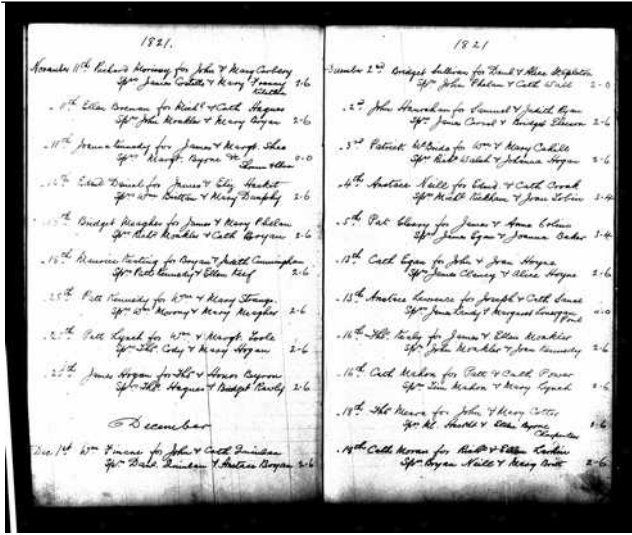 1821.
November 11th Richard Morrissy for John & Mary Carbery
Sprs James Costello & Mary 2-6
11th Ellen Brenan for Michl & Cath Hagues
Sprs John Monkler & Mary Bryan 2-6
11th Joanna Kennedy for James & Margt. Shea
Sprs Margt. Byrone & 0-0
Edmd Daniel for James & Eliz Hacket
Sprs Wm Britton & Mary Dunphy 2-6
Bridget Meagher for James & Mary Phelan
Sprs Richd Monkler & Cath Bryan 2-6
18th Maurice Keating for Bryan & Judith Cunningham
Sprs Patt Kennedy & Ellen Keef 2-6
25th Patt Kennedy for Wm & Mary Strange
Sprs Wm Morony & Mary Meagher 2-6
Patt Lynch for Wm & Margt. Toole
Sprs Thos Cody & Mary Hogan 2-6
James Hogan for Thos & Honor Byron
Sprs Thos Hagues & Bridget Rawly 2-6
December
Dec. 1st Wm for John & Cath Quinlan
Sprs Danl. Quinlan & Anstace Bryan 2-6
1821
December 2nd Bridget Sullivan for Danl & Alice Stapleton
Sprs John Phelan & Cath Wall 2-0
2nd John Hanrahan for Samuel & Judith Ryan
Sprs James Carrol & Bridget 2-6
3rd Patrick McBride for Wm & Mary Cahill
Sprs Richd Walsh & Johanna Hogan 2-6
4th Anstace Neill for Edmd. & Cath Croak
Sprs Michl Kickham & Joan Tobin 3-4
5th Pat Cleary for James & Anne Colins
Sprs James Egan & Joanna Baker 3-4
13th Cath Egan for John & Joan Hoyne
Sprs James Clancy & Alice Hoyne 2-6
15th Anstace Lawrence for Joseph & Cath
Sprs James Leidy & Margaret Lonergan
Poor 0-0
16th Thos. Kealy for James & Ellen Monkler
Sprs John Monkler & Joan Kennedy 2-6
16th Cath Mahon for Patt & Cath Power
Sprs Tim Mahon & Mary Lynch 2-6
18th Thos Meara for John & Mary Cotter
Sprs Ml. & Ellen Byrone
Carpenter
18th Cath Moran for Richd & Ellen Larkin
Sprs Bryan Neill & Mary Brett 2-6